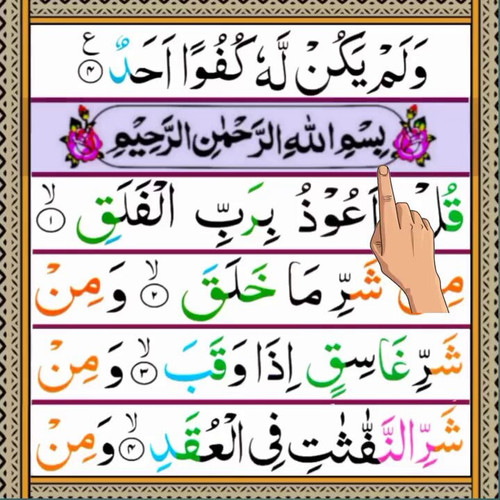 وَلَمْ يَكُنْ لَّهٗ كُفُوًا اَحَدٌ ﴿۴﴾ ع
بِسْمِ اللهِ الرَّحْمٰنِ الرَّحِيْمِ
قُلْ اَعُوْذُ بِرَبِّ الْفَلَقِ ۙ﴿۱﴾
مِنْ شَرِّ مَا خَلَقَ ۙ﴿۲﴾ وَ مِنْ
شَرِّ غَاسِقٍ اِذَا وَقَبَ ۙ﴿۳﴾ وَ مِنْ
شَرِّ النَّفّٰثٰتِ فِي الْعُقَدِ ۙ﴿۴﴾ وَ مِنْ